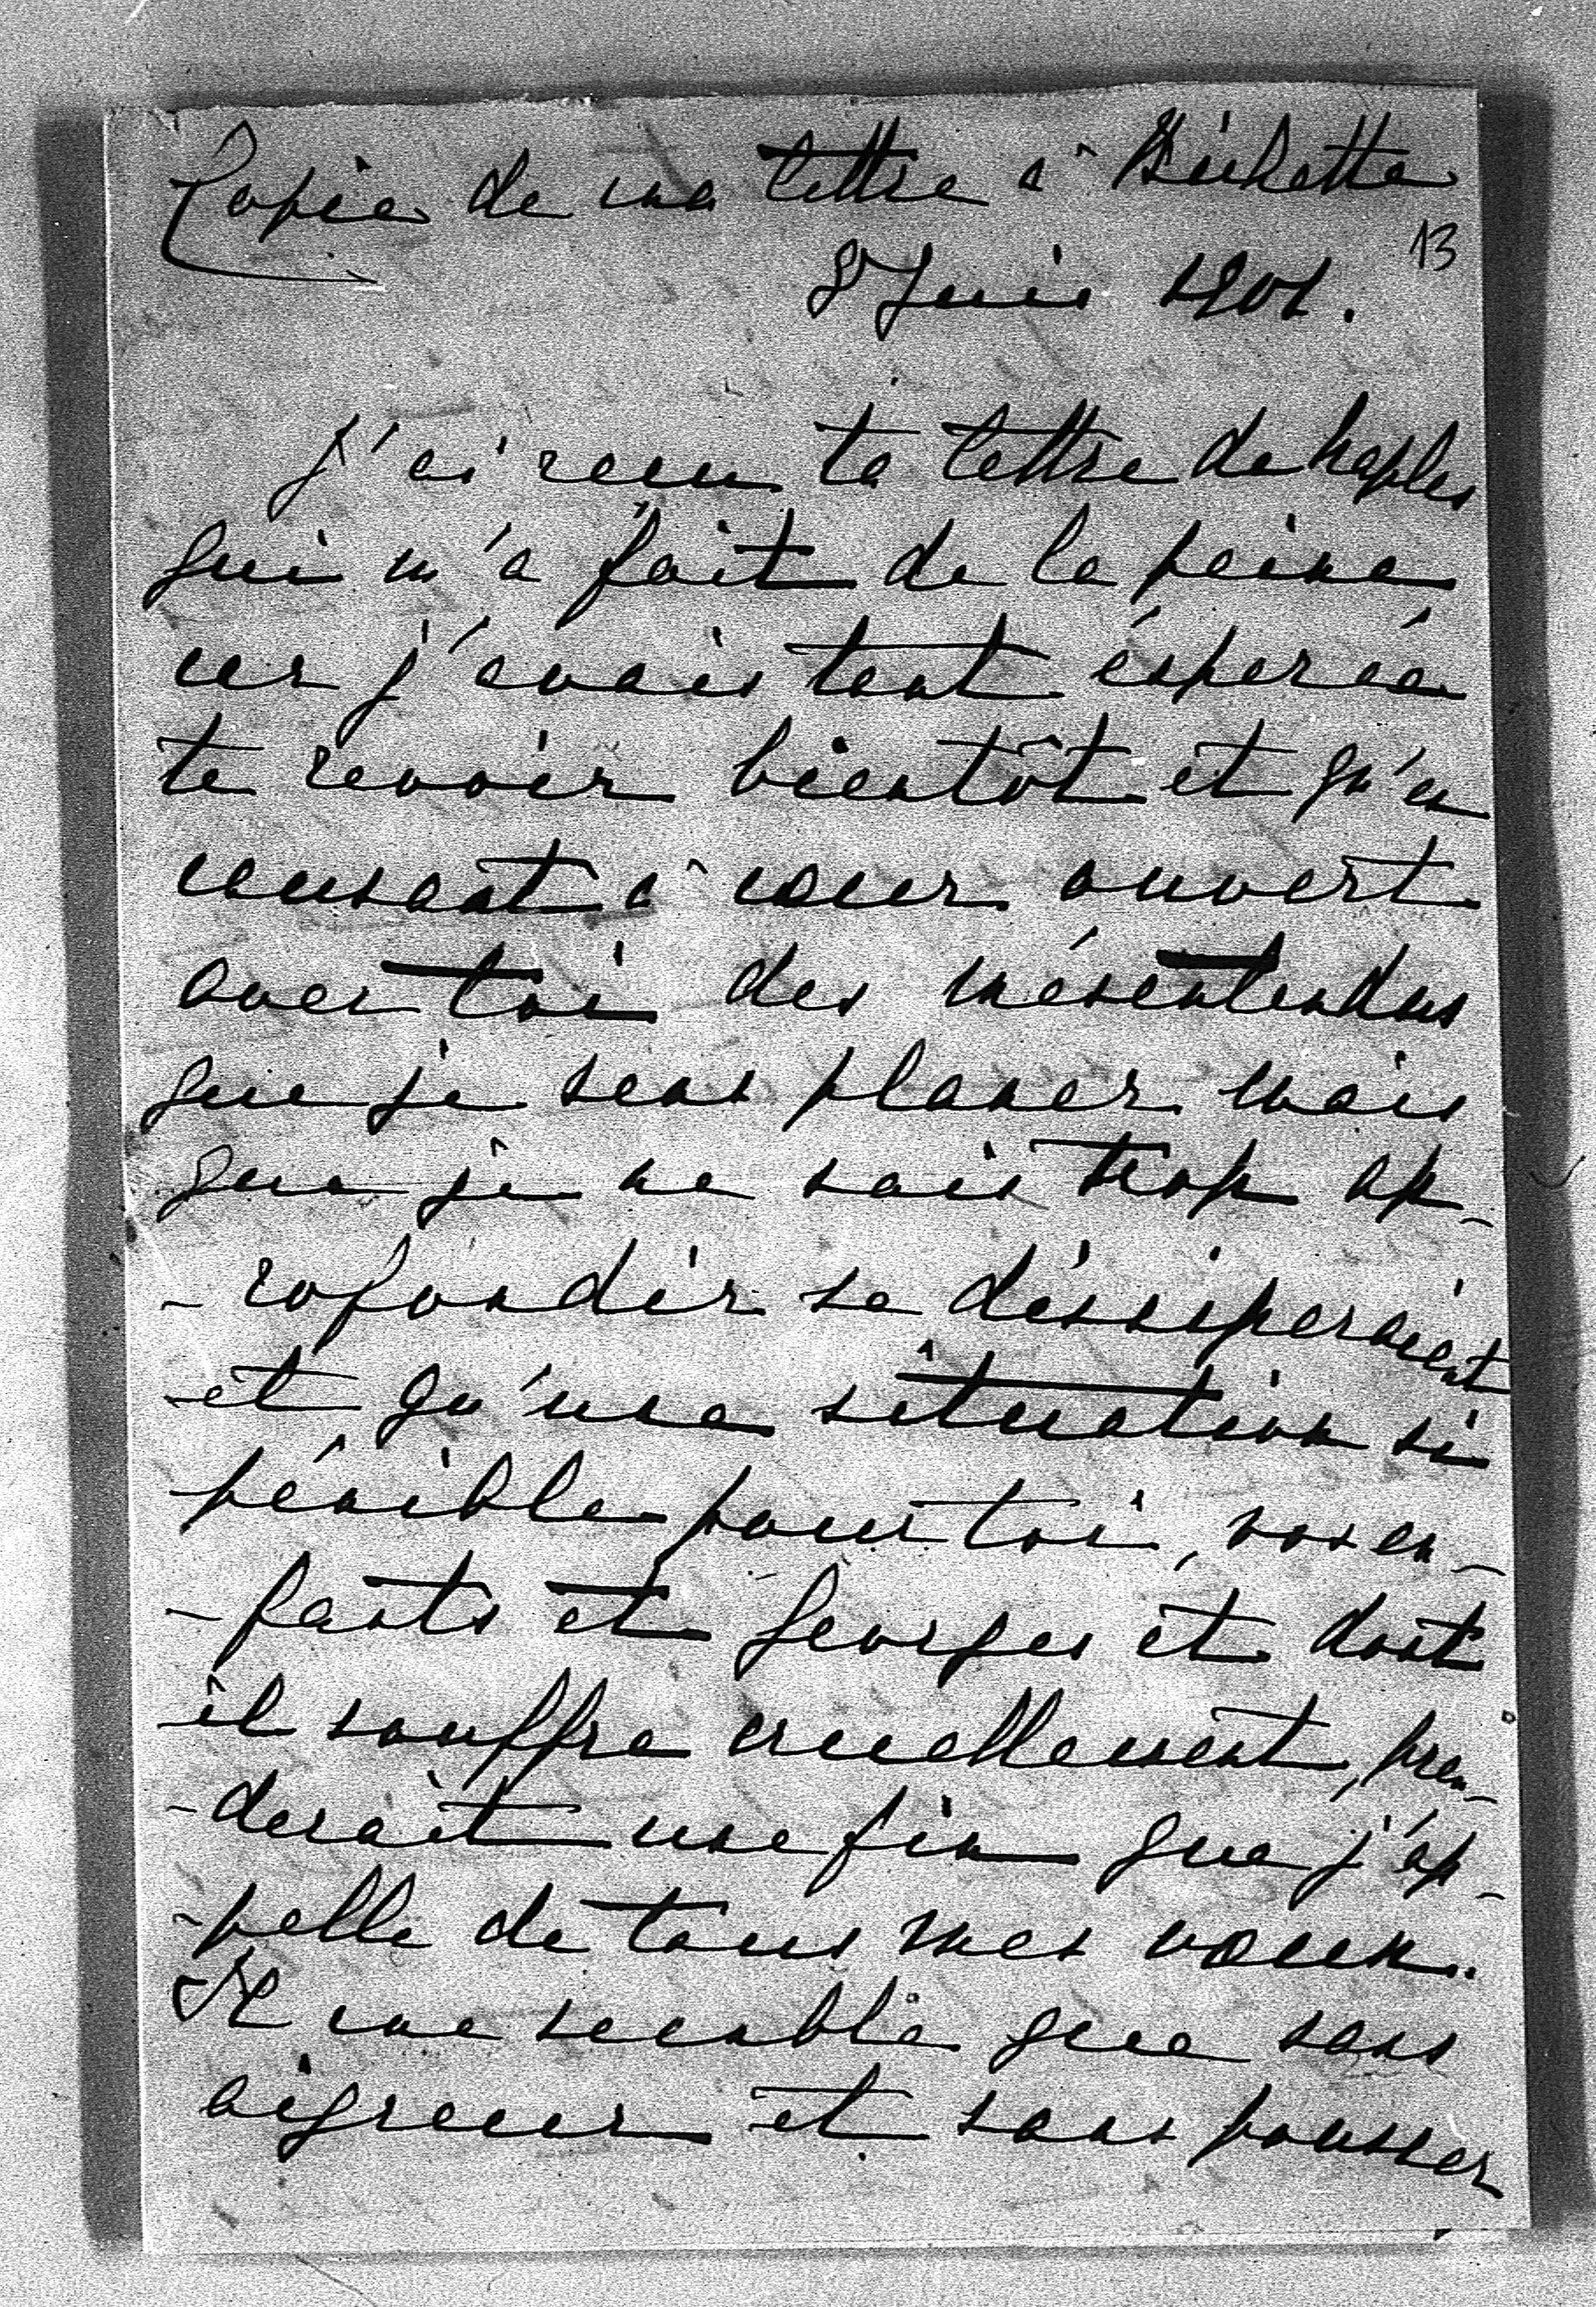 Copie de ma lettre à Bichette
13
8 Juin 1901.
J'ai reçu ta lettre de Naples
qui m'a fait de la peine
car j'avais tant espéré
te revoir bientôt et qu'en
causant à cœur ouvert
avec toi des mésentendus
que je sens planer mais
que je ne sais trop ap-
-rofondir se dissiperaient
et qu'une situation si
pénible pour toi, nos en-
-fants et Georges et dont
il souffre cruellement, pren-
-derait une fin que j'ap-
-pelle de tous mes vœux.
Il me semble que sans
aigreur et sans pousser